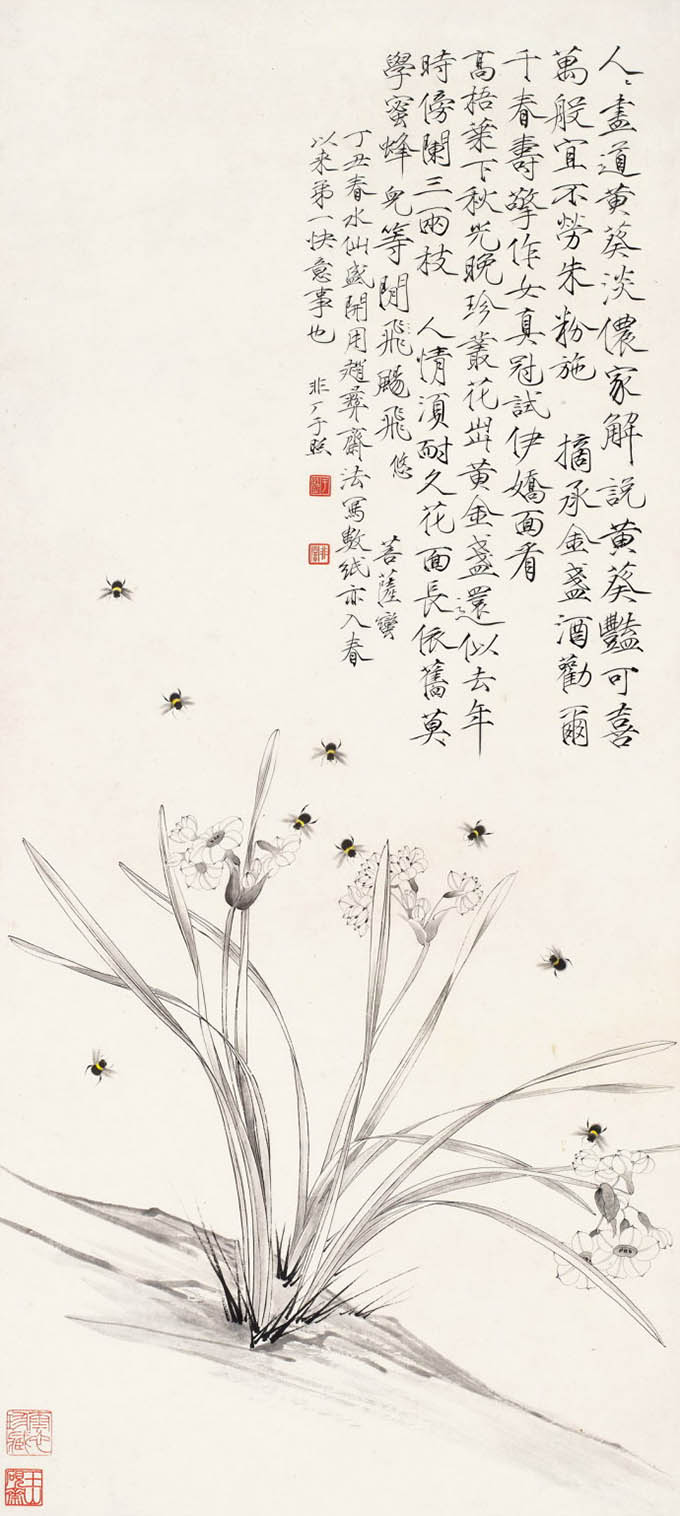 人〻盡道黃葵淡儂家解説黃葵豔可喜
萬般宜不勞朱粉施　摘承金盞酒勸爾
千春壽擎作女真冠試伊嬌面看
高梧葉下秋光晚珍叢花出黃金盞還似去年
時傍闌三兩枝　人情須耐久花面長依舊莫
學蜜蜂兒等閒飛颺飛悠　菩薩蠻
丁丑春水仙盛開用趙彝齋法寫數紙亦入春
以来弟一快意事也　非厂于照